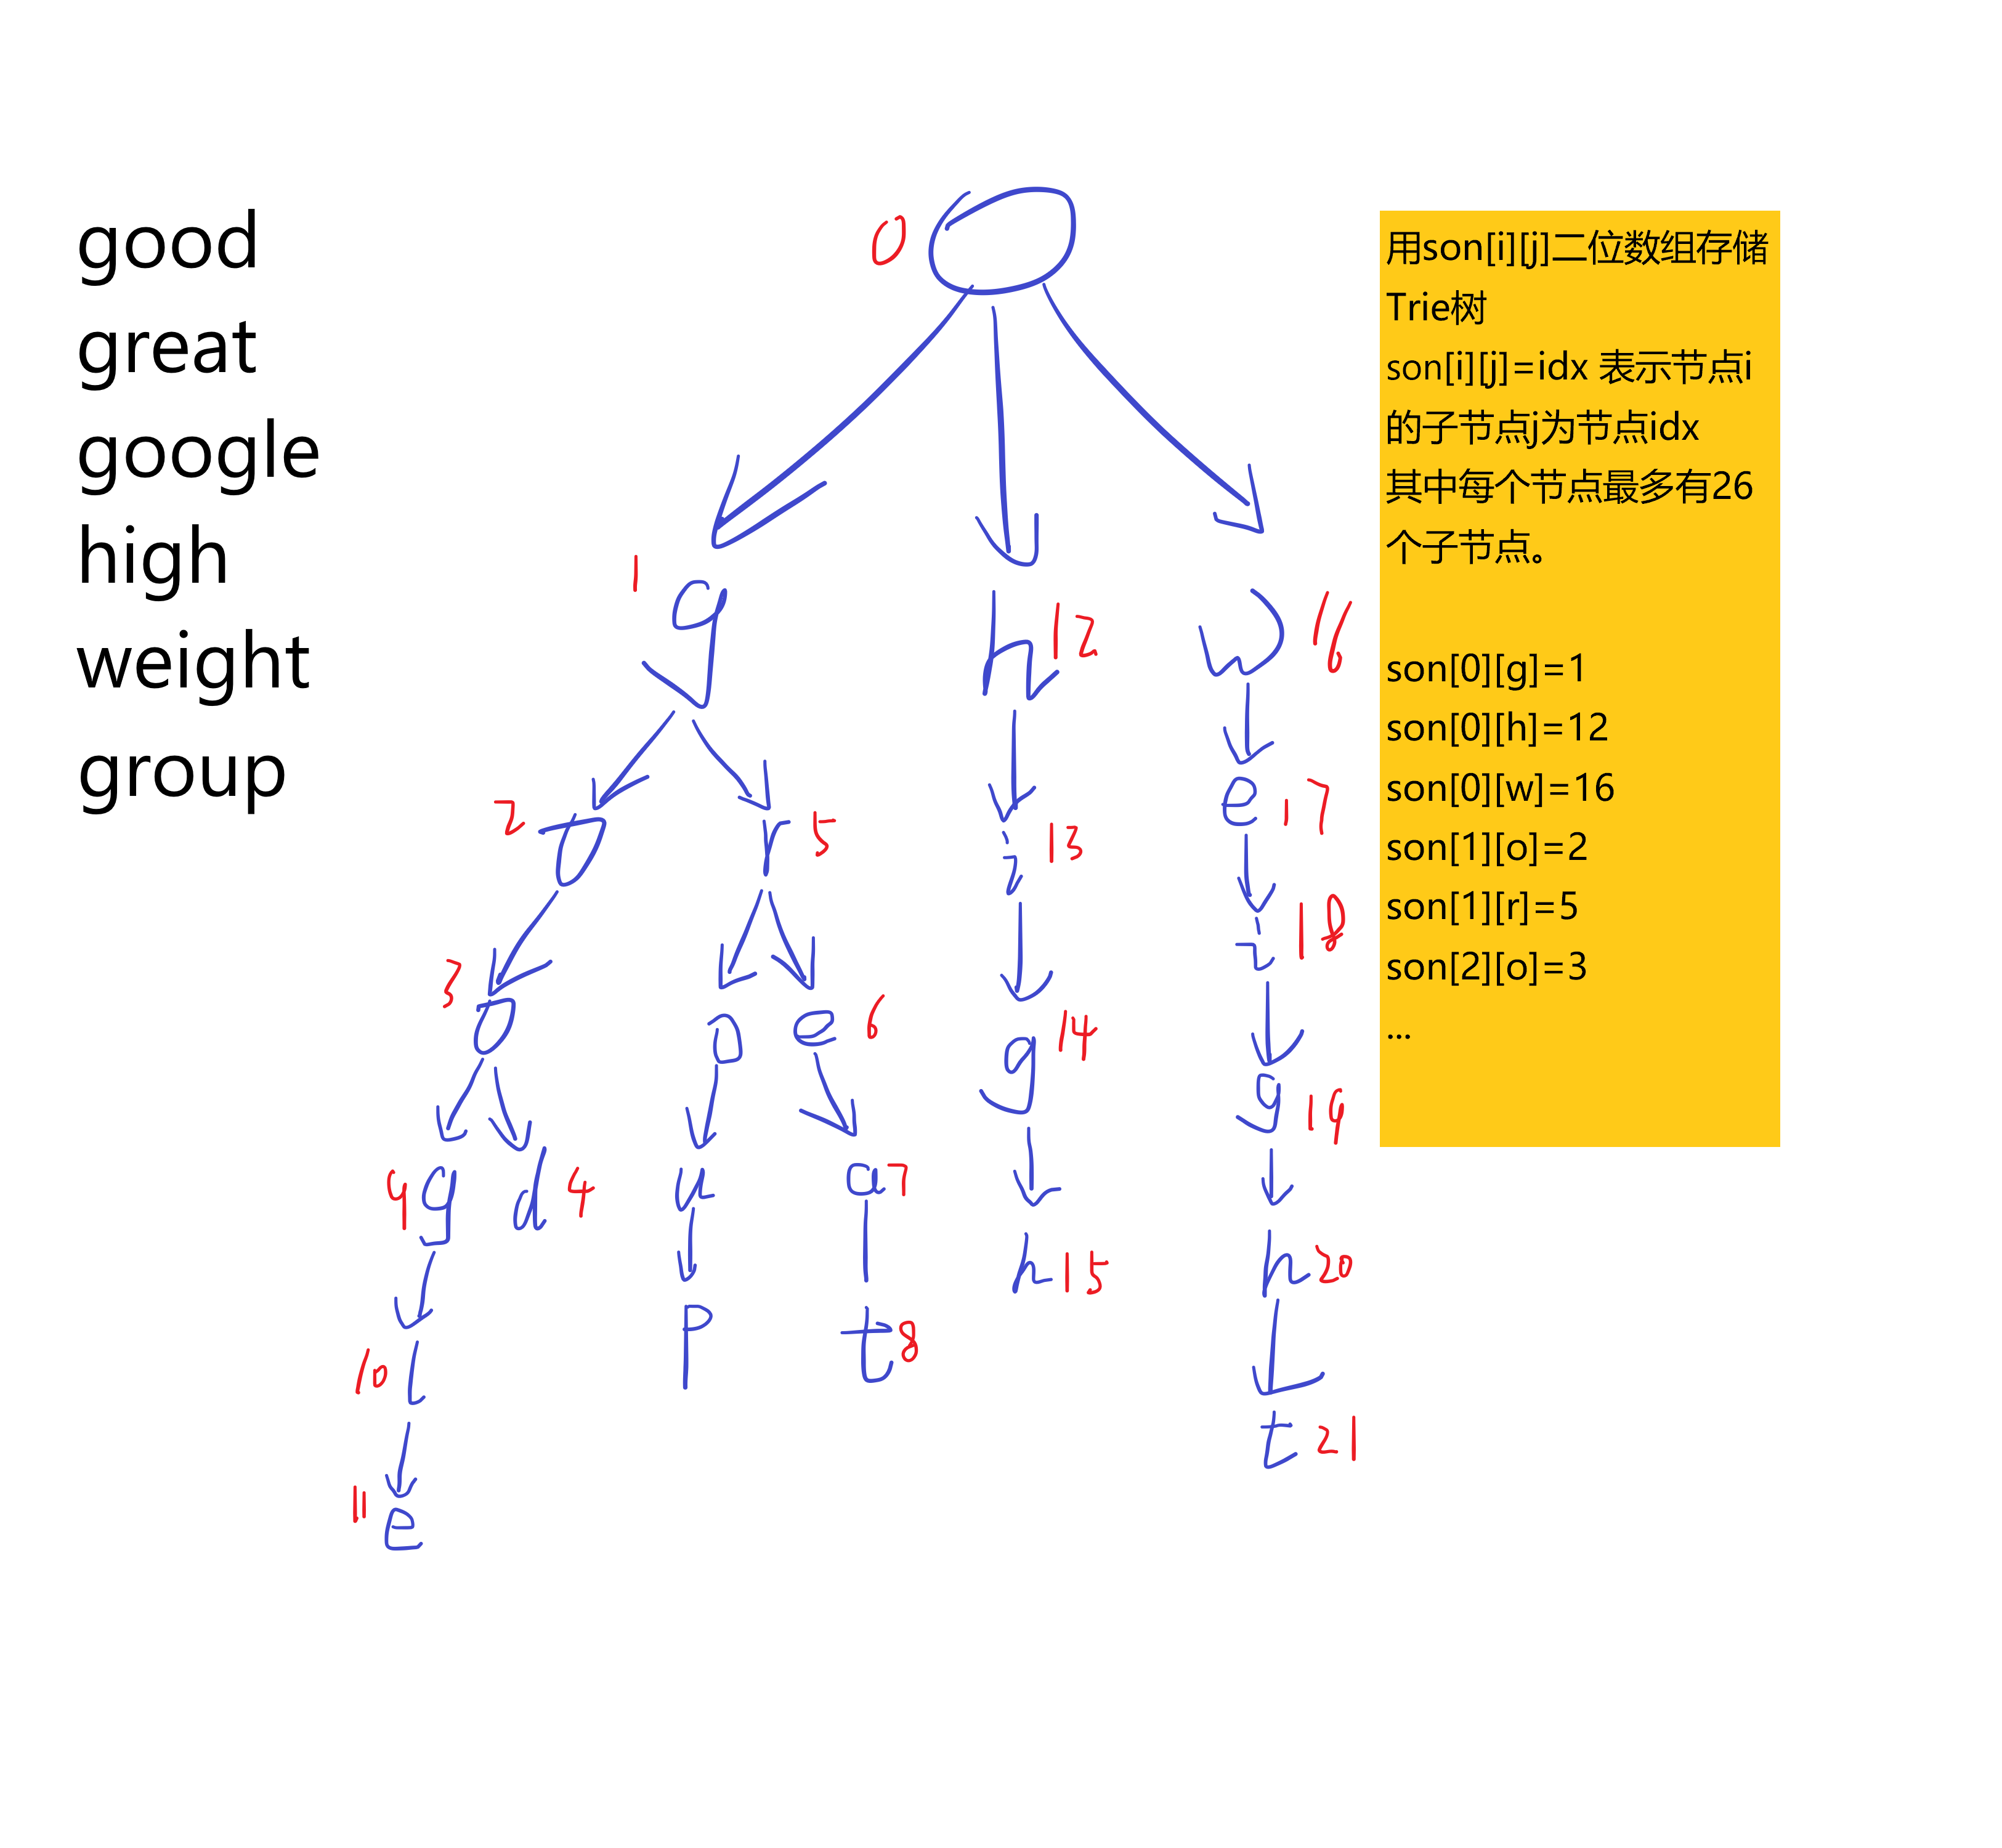 good
great
google
high
weight
group
0
1
g
h
12
w
16
2
o
r
5
i
13
e
17
3
o
o
e
6
g
14
i
18
9
g
d
4
u
a
7
h
15
g
19
10
l
p
t
8
h
20
11
e
t
21
用son[i][j]二位数组存储
Trie树
son[i][j]=idx 表示节点i
的子节点j为节点idx
其中每个节点最多有26
个子节点。
son[0][g]=1
son[0][h]=12
son[0][w]=16
son[1][o]=2
son[1][r]=5
son[2][o]=3
...